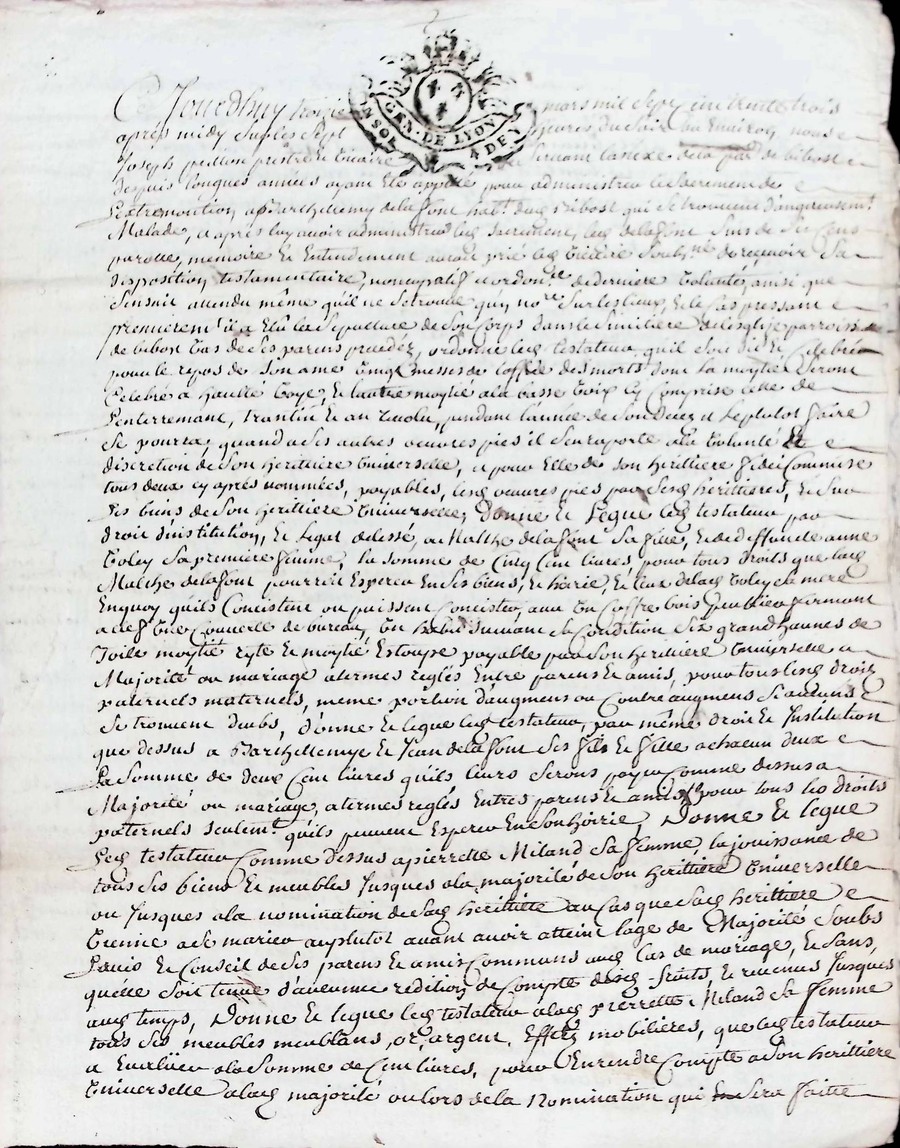 GEN. DE LYON
Jourdhuy treize mars mil sept cent trente trois
après midy sur les sept heures du soir ou environ, nous
Joseph prestre et vicaire servant l'annexe de la par. de bibost
depuis longues années ayant été appellé pour administrer le sacrement de
l'extremonction a Barthellemy delafont hab.t dud. Bibost qui se trouveroit dangereusem.t
Malade, et après luy avoir administré led. sacrement, led. delafont sain de ses sens
parolle, memoire et Entendement auroit prié led. vicaire soub.né de recevoir sa
disposition testamentaire, noncupatif et ordon.ce de derniere volonté, ainsi que
s'ensuit attendu même qu'il ne se trouve qun no.re sur les lieux, et le cas pressant
premierem.t il a Elû la sepulture de son corps dans le simitiere de l'esglise parroissiale
de bibost vas de ses parens precedez, ordonne led. testateur qu'il soit dit et celebré
pour le repos de son ame vingt messes de l'office des morts dont la moytié seront
Celebré a haulte voye, et l'autre moytié a la basse voix cy comprise celle de
l'enterremant, trantin et au bout de l'an, pendant l'année de son decez et le plutot faire
se pourra, quand a ses autres oeuvres pies il s'en raporte a la volonté et
discretion de son herittiere universelle, et pour elle de son herittiere fideicommise
tous deux cy après nommées, payables, lesd. oeuvres pies par sesd. herittieres, et sur
ses biens de son herittiere universelle; Donne et Legue led. testateur par
droit d'institution, et legat delessé, a Malthe delafont sa fille, et de deffuncte anne
Voley sa premiere femme, la somme de Cinq Cent livres, pour tous droits que lad.
Malthe delafont pourroit Esperer En ses biens, et hoirie, et ceux de lad. Voley sa mere
Enquoy qu'ils Concistent ou puissent Concister, avec Un Coffre bois fermant
a clef Une Couverte de bureau, Un habit suivant sa Condition six grand haunes de
Toile moytié ryte et moytié Estoupe payable par son herittiere Universelle a
Majorité ou mariage a termes reglés Entre parens et amis, pour tous sesd. droits
paternels maternels, meme portion d'augmens ou Contre augmens si aucuns
se trouvent deubs, donne et legue led. testateur, par même droit et Institution
que dessus a Barthellemye et Jean delafont ses fils et fille a chacun deux
La somme de deux Cent livres qu'ils leurs seront payer Comme dessus a
Majorité ou mariage, a termes reglés Entres parens et amis pour tous les droits
paternels seulem.t qu'ils peuvent Esperer En son hoirie, Donne et legue
led. testateur Comme dessus a pierrette Miland sa femme, la jouissance de
tous ses biens et meubles Jusques a la majorité de son herittiere Universelle
ou Jusques a la nomination de sad. herittiere au Cas que sad. herittiere
Vienne a se marier auplutot avant avoir atteint l'age de Majorité soubs
l'avis et Conseil de ses parens et amis Communs aud. Cas de mariage, et sans,
quelle soit tenue d'aucune redition de Compte desd. fruits, et revenus Jusques
aud. temps, Donne et legue led. testateur a lad. pierrette Miland sa femme
tous ses meubles meublans, or, argent, Effets mobilieres, que led. testateur
a Evalüer a la somme de Cent livres, pour En rendre Compte a son herittiere
Universelle a lad. majorité ou lors de la Nomination qui En sera faitte